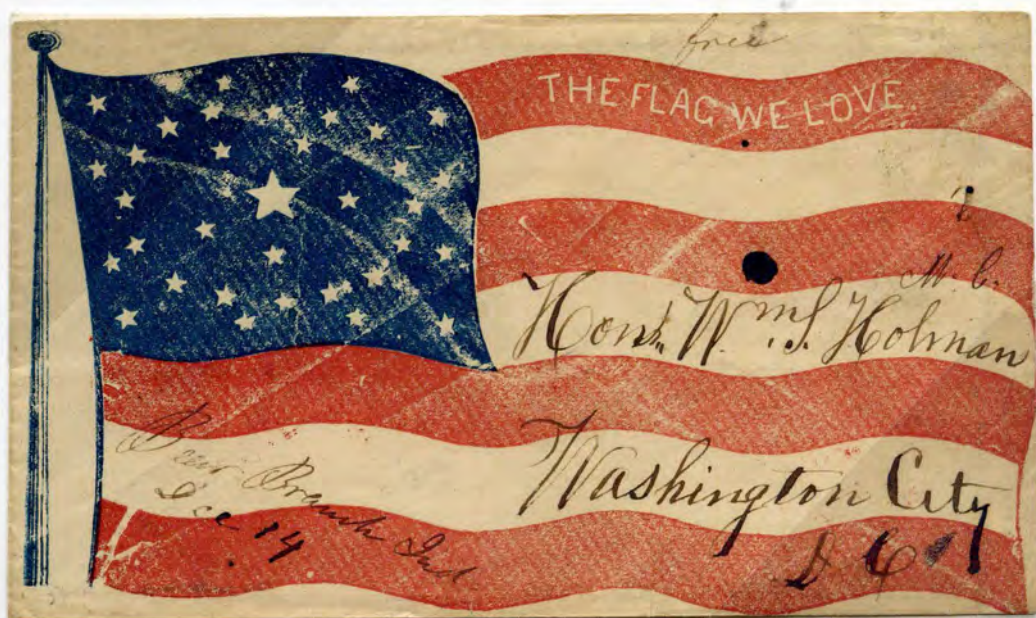 free
THE FLAG WE LOVE.
M.C.
Honl. Wm. S. Holman
Washington City
D C
Bear Branch Ind
Dec 14